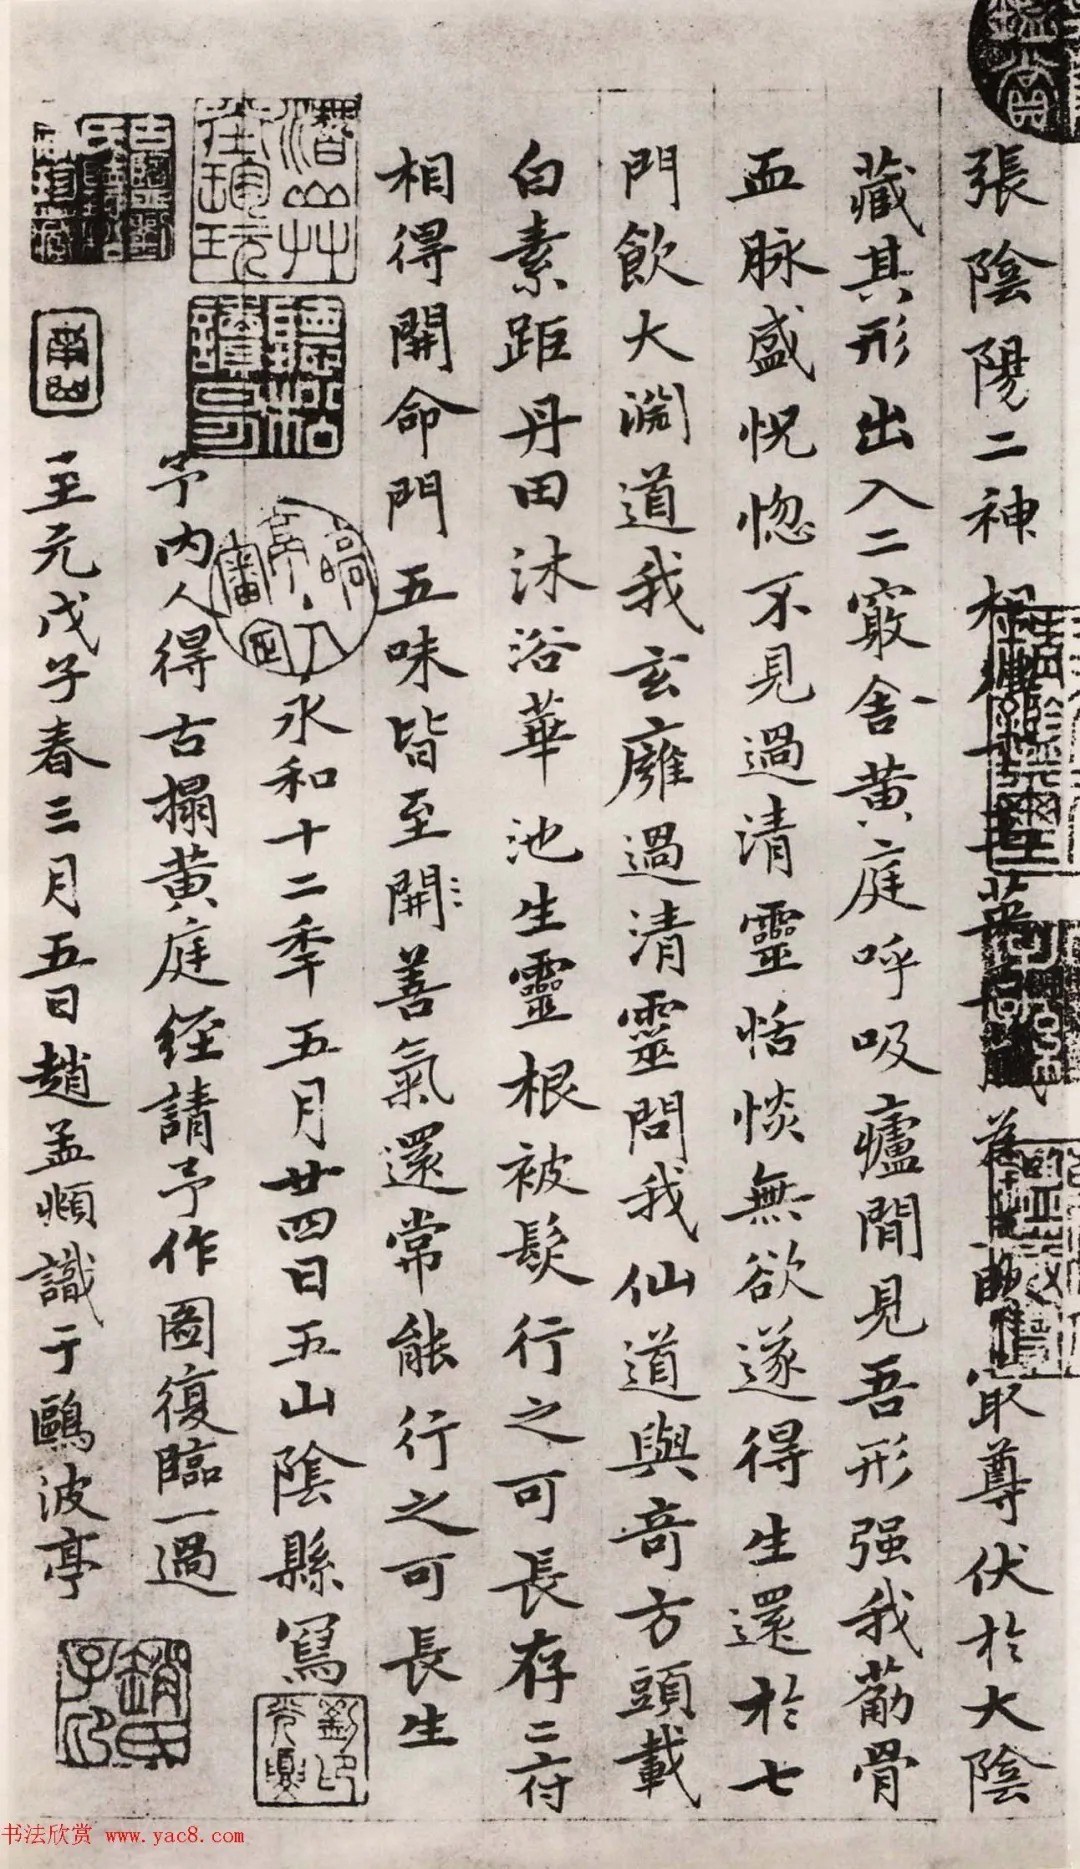 張陰陽二神相得下玉英 最尊伏於大陰
藏其形出入二竅舍黄庭呼吸廬閒見吾形强我筋骨
血脉盛怳惚不見過清靈恬惔無欲遂得生還於七
門飲大淵道我玄廱過清靈問我仙道與奇方頭載
白素距丹田沐浴華池生靈根被髮行之可長存二府
相得開命門五味皆至開善氣還常能行之可長生
永和十二年五月廿四日五山陰縣寫
予内人得古搨黄庭經請予作圖復臨一過
至元戊子春三月五日趙孟頫識于鷗波亭
趙氏子昂
書法欣赏 www.yac8.com